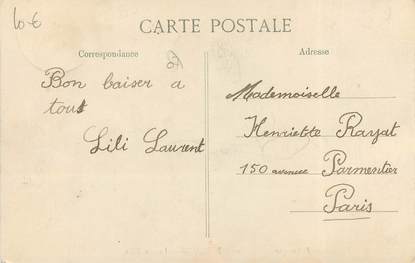 10 €
CARTE POSTALE
Correspondance
Adresse
Bon baiser a
tous
Lili Laurent
Mademoiselle
Henriette Rayat
150 avenue Parmentier
Paris